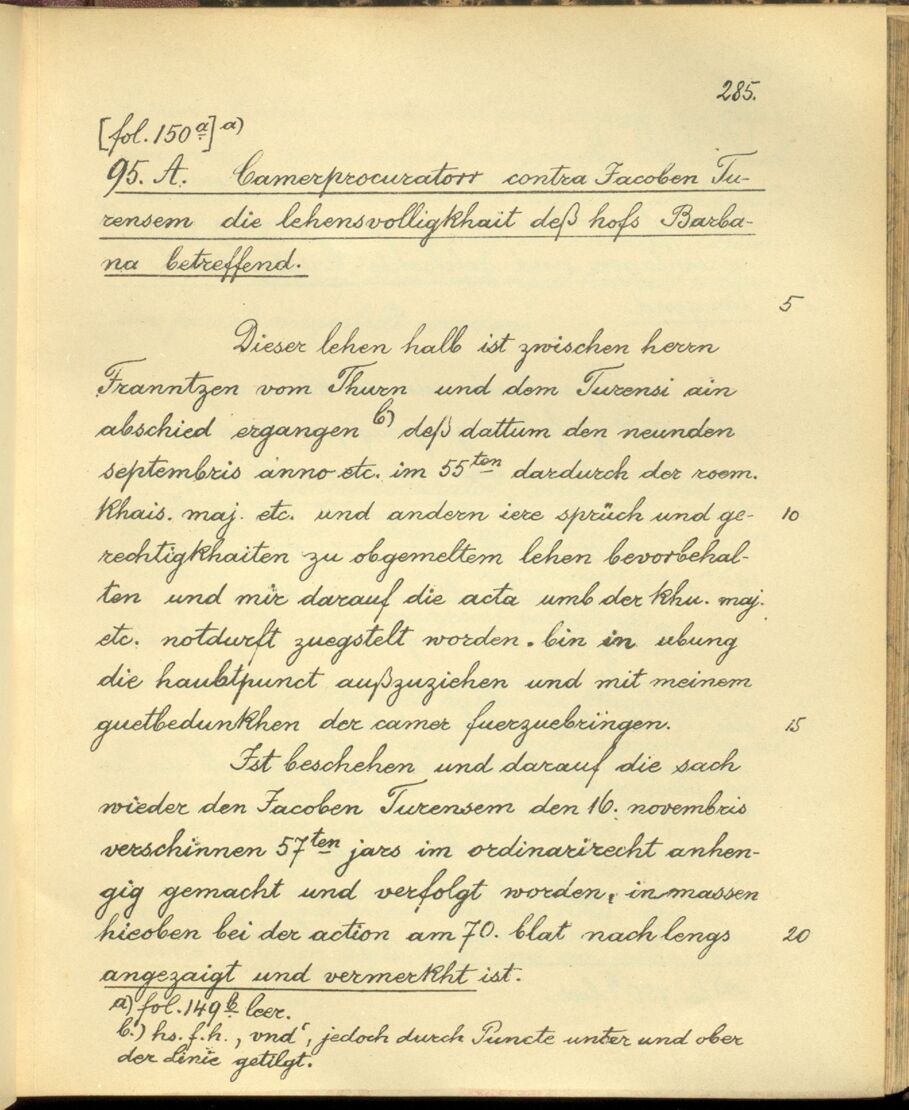 285.
[fol. 150ª] a)
95. A. Camerprocuratorr contra Jacoben Tu-
rensem die lehensvolligkhait deß hofs Barba-
na betreffend.
5
Dieser lehen halb ist zwischen herrn
Franntzen vom Thurn und dem Turensi ain
abschied ergangen b) deß dattum den neunden
septembris anno etc. im 55ten dardurch der roem.
khais. maj. etc. und andern iere sprüch und ge- 10
rechtigkhaiten zu obgemeltem lehen bevorbehal-
ten und mir darauf die acta umb der khu. maj.
etc. notdurft zuegstelt worden. bin in ubung
die haubtpunct außzuziehen und mit meinem
guetbedunkhen der camer fuerzuebringen. 15
Ist beschehen und darauf die sach
wieder den Jacoben Turensem den 16. novembris
verschinnen 57ten jars im ordinarirecht anhen-
gig gemacht und verfolgt worden, inmassen
hieoben bei der action am 70. blat nach lengs 20
angezaigt und vermerkht ist.
a) fol. 149b leer.
b.) hs. f. h. , vnd‘, jedoch durch Puncte unter und ober
der Linie getilgt.